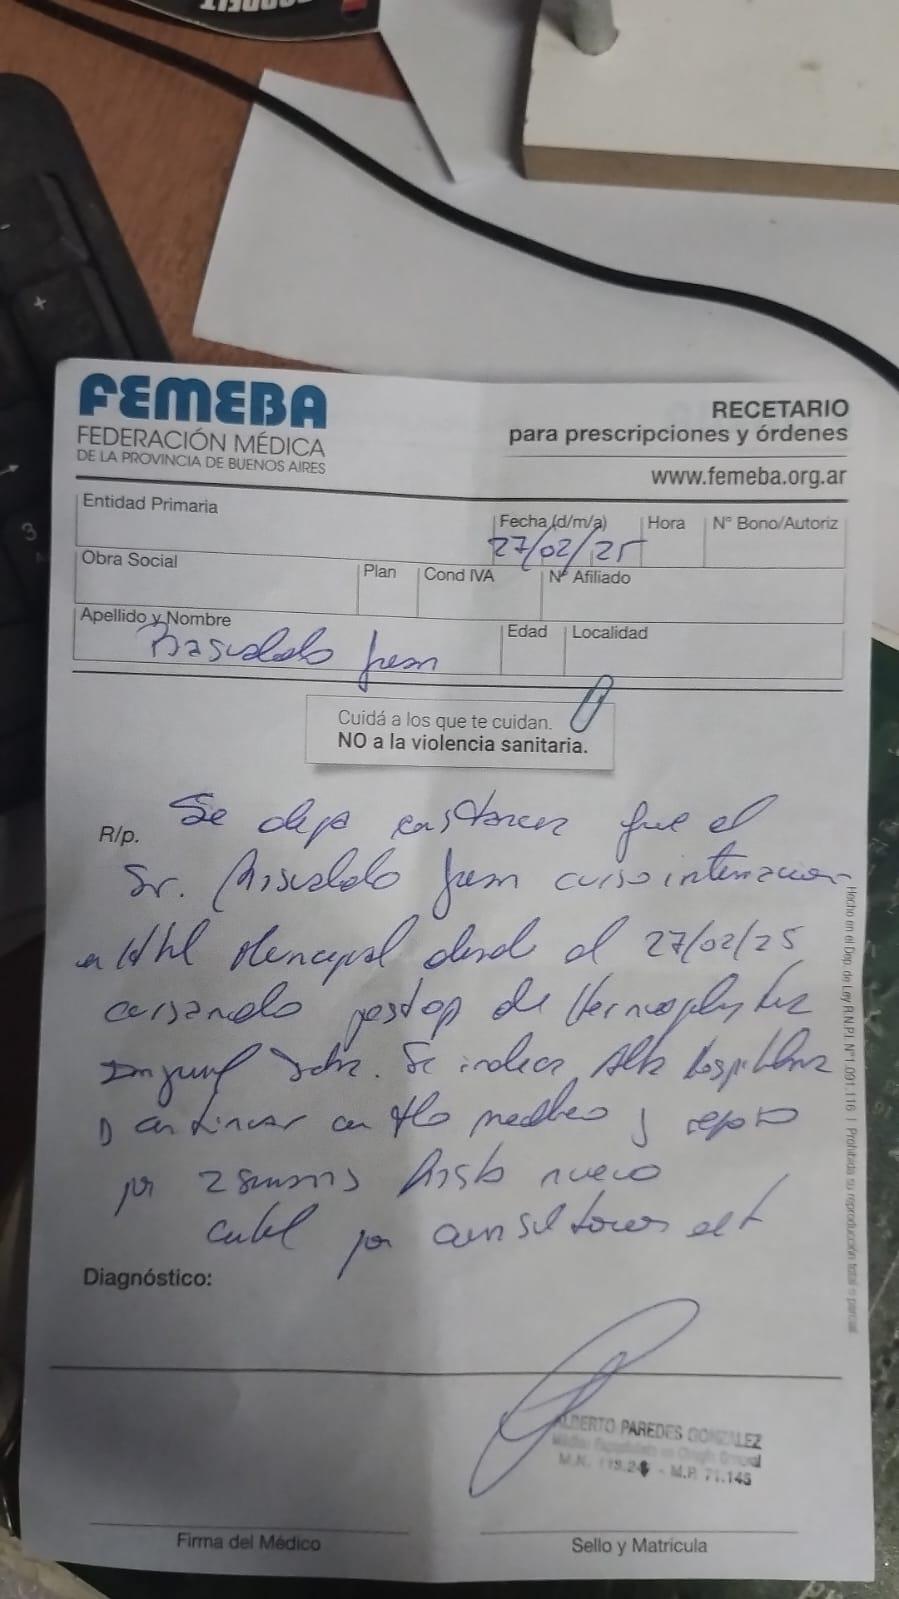 FEMEBA
FEDERACIÓN MÉDICA
DE LA PROVINCIA DE BUENOS AIRES
RECETARIO
para prescripciones y órdenes
www.femeba.org.ar
Entidad Primaria
Fecha (d/m/a)
27/02/25
Hora
N° Bono/Autoriz
Obra Social
Plan
Cond IVA
N° Afiliado
Apellido y Nombre
Basualdo Juan
Edad
Localidad
Cuidá a los que te cuidan.
NO a la violencia sanitaria.
R/p.
Se deja constancia que el
Sr. Basualdo Juan curso internacion
en Municipal desde el 27/02/25
cursando postop de Hernioplastia
Inguinal Dcha. Se indica Alta Hospitalaria
continuar con tto medico y reposo
por 2 semanas hasta nuevo
control por consultorios ext
Diagnóstico:
ALBERTO PAREDES GONZALEZ
Médico Especialista en Cirugía General
M.P. 71.145
Firma del Médico
Sello y Matrícula
Hecho en el Dep. de Ley R.N.P.I. N°1.091.116 | Prohibida su reproducción total o parcial
+
3